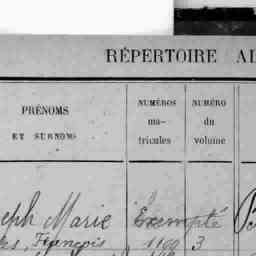 RÉPERTOIRE AL
PRÉNOMS ET SURNOMS
NUMÉROS ma- tricules
NUMÉRO du volume
eph Marie Exempté
François 1100 3